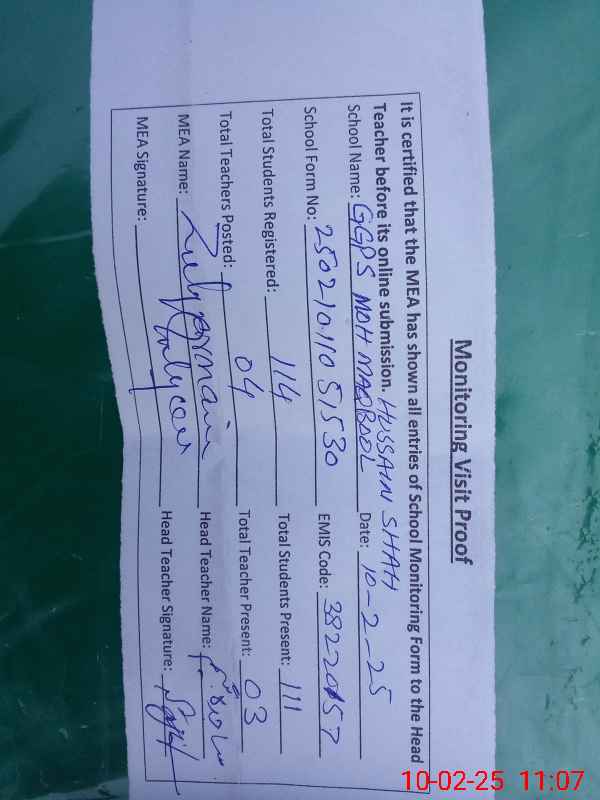 Monitoring Visit Proof
It is certified that the MEA has shown all entries of School Monitoring Form to the Head
Teacher before its online submission. HUSSAIN SHAH
School Name: GGPS MOH MAQBOOL Date: 10-2-25
School Form No: 25021011051530 EMIS Code: 38220157
Total Students Registered: 114 Total Students Present: 111
Total Teachers Posted: 04 Total Teacher Present: 03
MEA Name: Head Teacher Name:
MEA Signature: Head Teacher Signature:
10-02-25 11:07